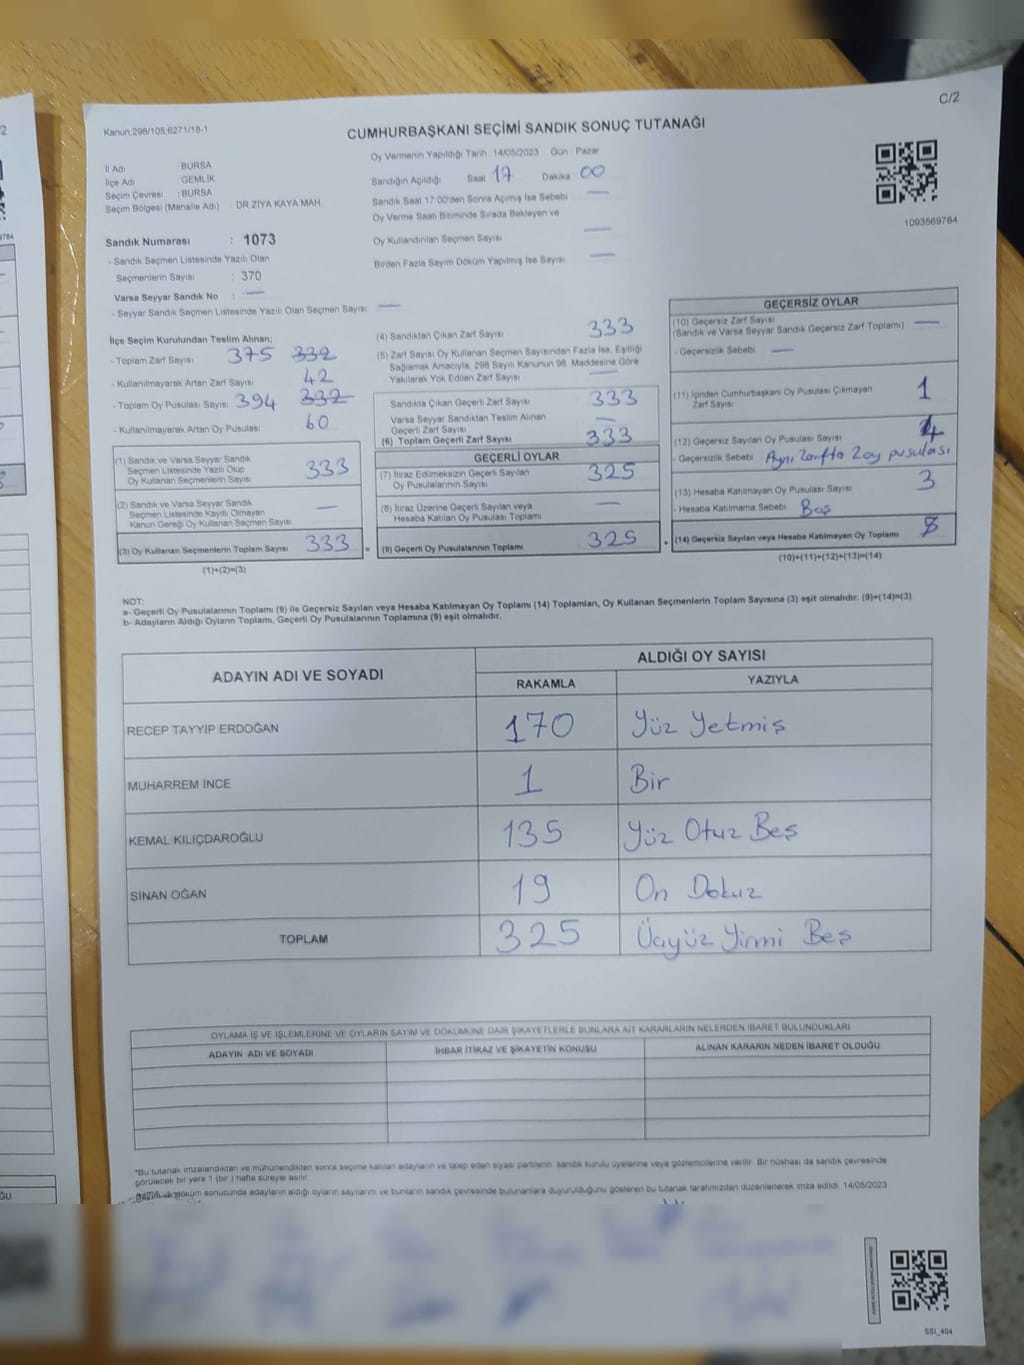 C/2
Kanun:298/105;6271/18-1
CUMHURBAŞKANI SEÇİMİ SANDIK SONUÇ TUTANAĞI
İl Adı : BURSA
İlçe Adı : GEMLİK
Seçim Çevresi : BURSA
Seçim Bölgesi (Mahalle Adı) DR.ZİYA KAYA MAH.
Oy Vermenin Yapıldığı Tarih: 14/05/2023 Gün Pazar
Sandığın Açıldığı Saat 17 Dakika 00
Sandık Saat 17:00'den Sonra Açılmış İse Sebebi —
Oy Verme Saati Bitiminde Sırada Bekleyen ve
Oy Kullandırılan Seçmen Sayısı —
Birden Fazla Sayım Döküm Yapılmış İse Sayısı —
1093569784
Sandık Numarası : 1073
- Sandık Seçmen Listesinde Yazılı Olan
Seçmenlerin Sayısı : 370
Varsa Seyyar Sandık No : —
- Seyyar Sandık Seçmen Listesinde Yazılı Olan Seçmen Sayısı —
İlçe Seçim Kurulundan Teslim Alınan;
- Toplam Zarf Sayısı 375 332
- Kullanılmayarak Artan Zarf Sayısı 42
- Toplam Oy Pusulası Sayısı 394 332
- Kullanılmayarak Artan Oy Pusulası 60
(1) Sandık ve Varsa Seyyar Sandık
Seçmen Listesinde Yazılı Olup
Oy Kullanan Seçmenlerin Sayısı 333
(2) Sandık ve Varsa Seyyar Sandık
Seçmen Listesinde Kayıtlı Olmayan
Kanun Gereği Oy Kullanan Seçmen Sayısı —
(3) Oy Kullanan Seçmenlerin Toplam Sayısı 333
(1)+(2)=(3)
(4) Sandıktan Çıkan Zarf Sayısı 333
(5) Zarf Sayısı Oy Kullanan Seçmen Sayısından Fazla İse, Eşitliği
Sağlamak Amacıyla, 298 Sayılı Kanunun 98. Maddesine Göre
Yakılarak Yok Edilen Zarf Sayısı —
Sandıkta Çıkan Geçerli Zarf Sayısı 333
Varsa Seyyar Sandıktan Teslim Alınan
Geçerli Zarf Sayısı —
(6) Toplam Geçerli Zarf Sayısı 333
GEÇERLİ OYLAR
(7) İtiraz Edilmeksizin Geçerli Sayılan
Oy Pusulalarının Sayısı 325
(8) İtiraz Üzerine Geçerli Sayılan veya
Hesaba Katılan Oy Pusulası Toplamı —
= (9) Geçerli Oy Pusulalarının Toplamı 325
GEÇERSİZ OYLAR
(10) Geçersiz Zarf Sayısı
(Sandık ve Varsa Seyyar Sandık Geçersiz Zarf Toplamı) —
- Geçersizlik Sebebi : —
(11) İçinden Cumhurbaşkanı Oy Pusulası Çıkmayan
Zarf Sayısı 1
(12) Geçersiz Sayılan Oy Pusulası Sayısı 4
- Geçersizlik Sebebi Aynı Zarfta 2 oy pusulası
(13) Hesaba Katılmayan Oy Pusulası Sayısı 3
- Hesaba Katılmama Sebebi Boş
+ (14) Geçersiz Sayılan veya Hesaba Katılmayan Oy Toplamı 8
(10)+(11)+(12)+(13)=(14)
NOT:
a- Geçerli Oy Pusulalarının Toplamı (9) ile Geçersiz Sayılan veya Hesaba Katılmayan Oy Toplamı (14) Toplamları, Oy Kullanan Seçmenlerin Toplam Sayısına (3) eşit olmalıdır. (9)+(14)=(3)
b- Adayların Aldığı Oyların Toplamı, Geçerli Oy Pusulalarının Toplamına (9) eşit olmalıdır.
ADAYIN ADI VE SOYADI ALDIĞI OY SAYISI
RAKAMLA YAZIYLA
RECEP TAYYİP ERDOĞAN 170 Yüz Yetmiş
MUHARREM İNCE 1 Bir
KEMAL KILIÇDAROĞLU 135 Yüz Otuz Beş
SİNAN OĞAN 19 On Dokuz
TOPLAM 325 Üçyüz Yirmi Beş
OYLAMA İŞ VE İŞLEMLERİNE VE OYLARIN SAYIM VE DÖKÜMÜNE DAİR ŞİKAYETLERLE BUNLARA AİT KARARLARIN NELERDEN İBARET BULUNDUKLARI
ADAYIN ADI VE SOYADI İHBAR İTİRAZ VE ŞİKAYETİN KONUSU ALINAN KARARIN NEDEN İBARET OLDUĞU
*Bu tutanak imzalandıktan ve mühürlendikten sonra seçime katılan adayların ve talep eden siyasi partilerin, sandık kurulu üyelerine veya gözlemcilerine verilir. Bir nüshası da sandık çevresinde
görülecek bir yere 1 (bir) hafta süreyle asılır.
sonucunda adayların aldığı oyların sayılarını ve bunların sandık çevresinde bulunanlara duyurulduğunu gösteren bu tutanak tarafımızdan düzenlenerek imza edildi. 14/05/2023
SSI_404